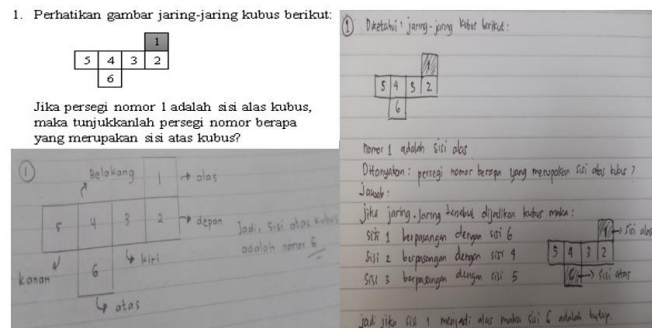 1. Perhatikan gambar jaring-jaring kubus berikut:
1
5 4 3 2
6
Jika persegi nomor 1 adalah sisi alas kubus,
maka tunjukkanlah persegi nomor berapa
yang merupakan sisi atas kubus?
1
Belakang 1 alas
5 4 3 2 depan
kiri
kanan 6
atas
Jadi, sisi atas kubus
adalah nomor 6
1 Diketahui: jaring-jaring kubus berikut:
1
5 4 3 2
6
nomor 1 adalah sisi alas
Ditanyakan: persegi nomor berapa yang merupakan sisi atas kubus?
Jawab:
jika jaring-jaring tersebut dijadikan kubus maka:
sisi 1 berpasangan dengan sisi 6
sisi 2 berpasangan dengan sisi 4
sisi 3 berpasangan dengan sisi 5
1 sisi alas
5 4 3 2
6 sisi atas
jadi jika sisi 1 menjadi alas maka sisi 6 adalah tutup.